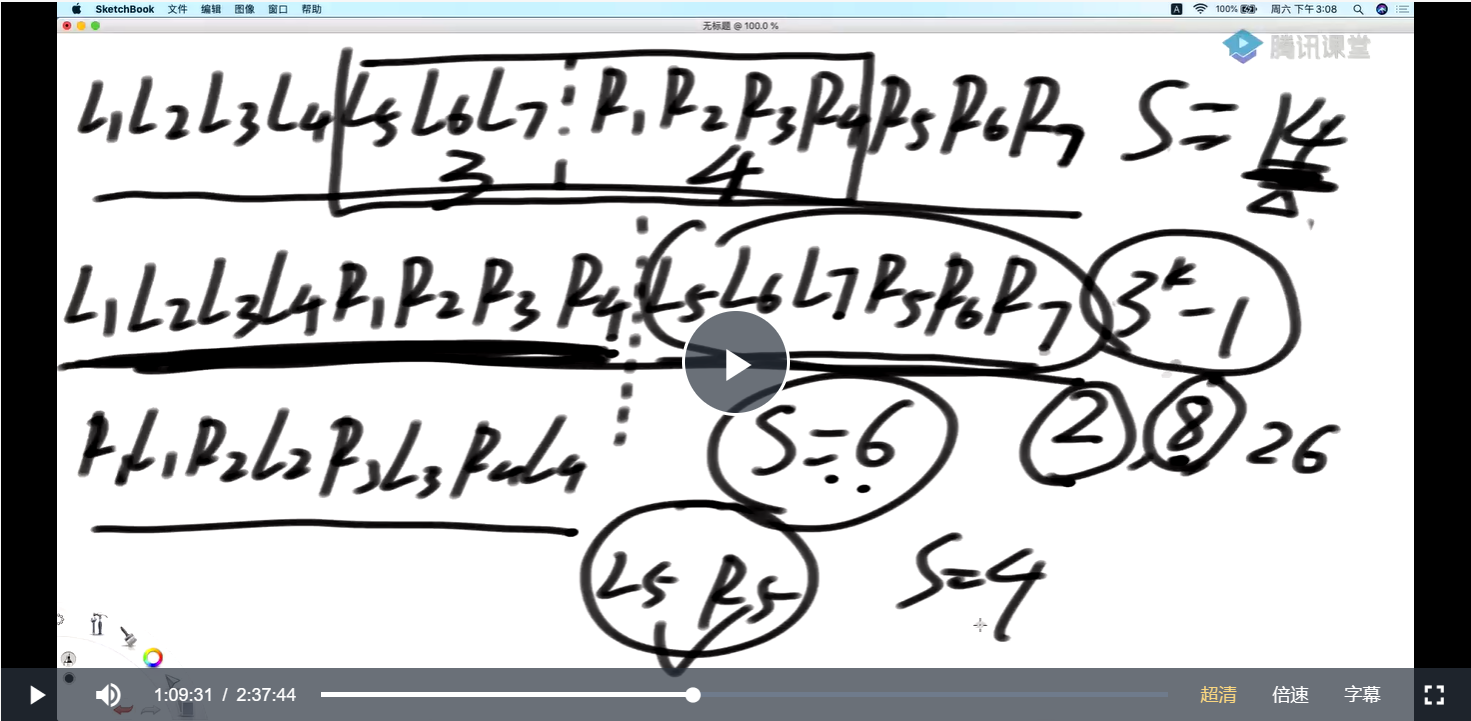 SketchBook 文件 编辑 图像 窗口 帮助 A 100% 周六 下午3:08
无标题 @ 100.0 %
腾讯课堂
L1 L2 L3 L4 L5 L6 L7 R1 R2 R3 R4 R5 R6 R7 S=14
3 4
L1 L2 L3 L4 R1 R2 R3 R4 L5 L6 L7 R5 R6 R7 3^k-1
R1 L1 R2 L2 R3 L3 R4 L4 S=6 2, 8, 26
L5 R5 S=4
1:09:31 / 2:37:44 超清 倍速 字幕